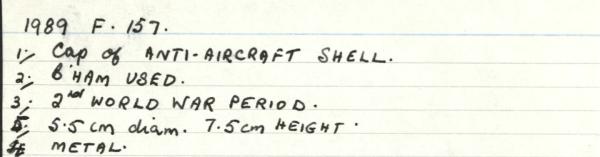 1989 F. 157.
1; Cap of ANTI-AIRCRAFT SHELL.
2; B'HAM USED.
3; 2nd WORLD WAR PERIOD.
5; 5.5 cm diam. 7.5 cm HEIGHT.
4; METAL.